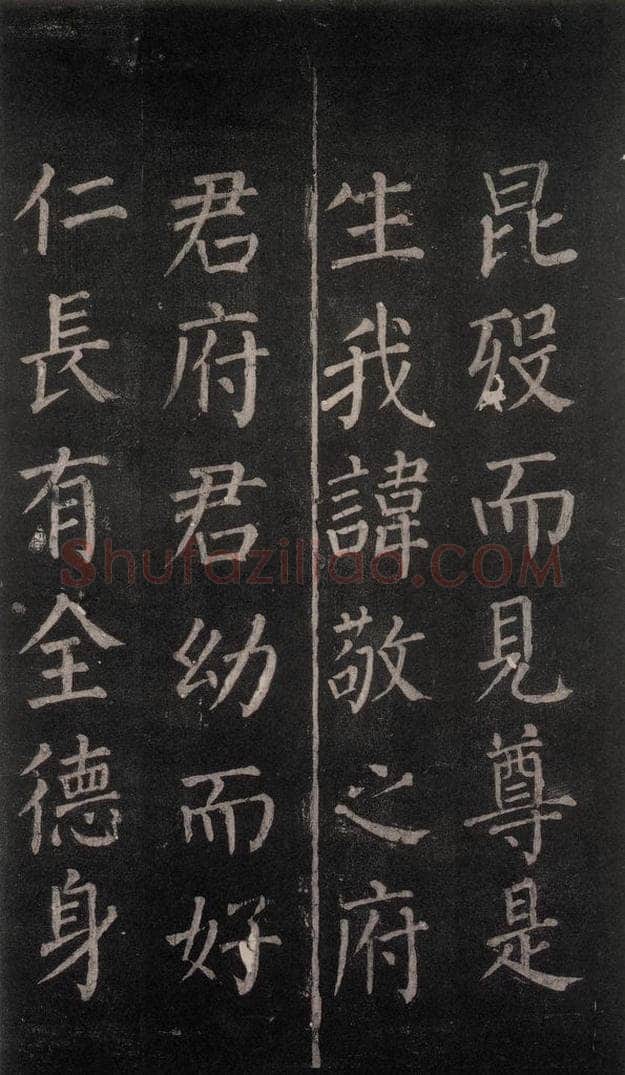 昆歿而見尊是
生我諱敬之府
君府君幼而好
仁長有全德身
Shufaziliao.COM